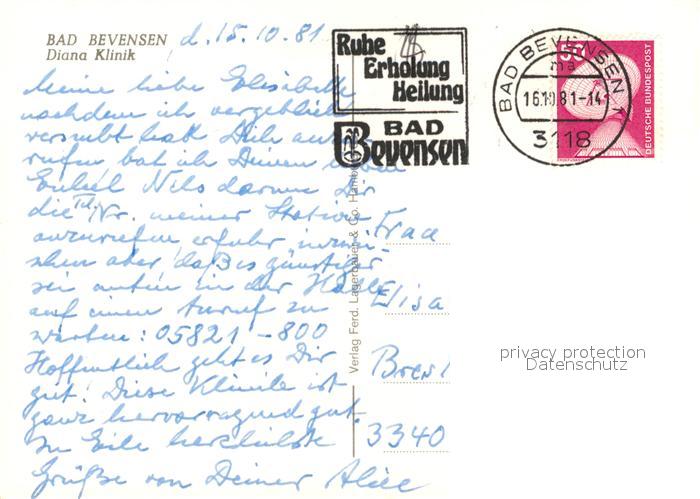 BAD BEVENSEN
Diana Klinik
d. 15.10.81
Meine liebe Elisabeth
nachdem ich vergeblich
versucht hab Dich an
rufen bat ich Deinen
Enkel Nils darum Dir
die Tel. Nr. meiner Station
anzurufen erfuhr inzwi
schen aber daß es günstiger
sei unten in der Halle
auf einen Anruf zu
warten: 05821 - 800
Hoffentlich geht es Dir
gut! Diese Klinik ist
ganz hervorragend gut.
In Eile herzlichste
Grüße von Deiner Alice
Ruhe
Erholung
Heilung
BAD
Bevensen
BAD BEVENSEN 1
ma
16.10.81-14
3118
50
DEUTSCHE BUNDESPOST
Verlag Ferd. Lagerbauer & Co. Hamburg
Frau
Elisa
Bresl
3340
privacy protection
Datenschutz